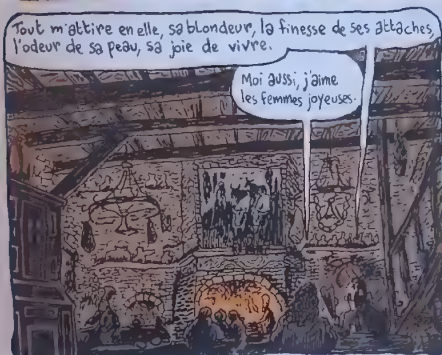 Tout m'attire en elle, sa blondeur, la finesse de ses attaches,
l'odeur de sa peau, sa joie de vivre.
Moi aussi, j'aime
les femmes joyeuses.